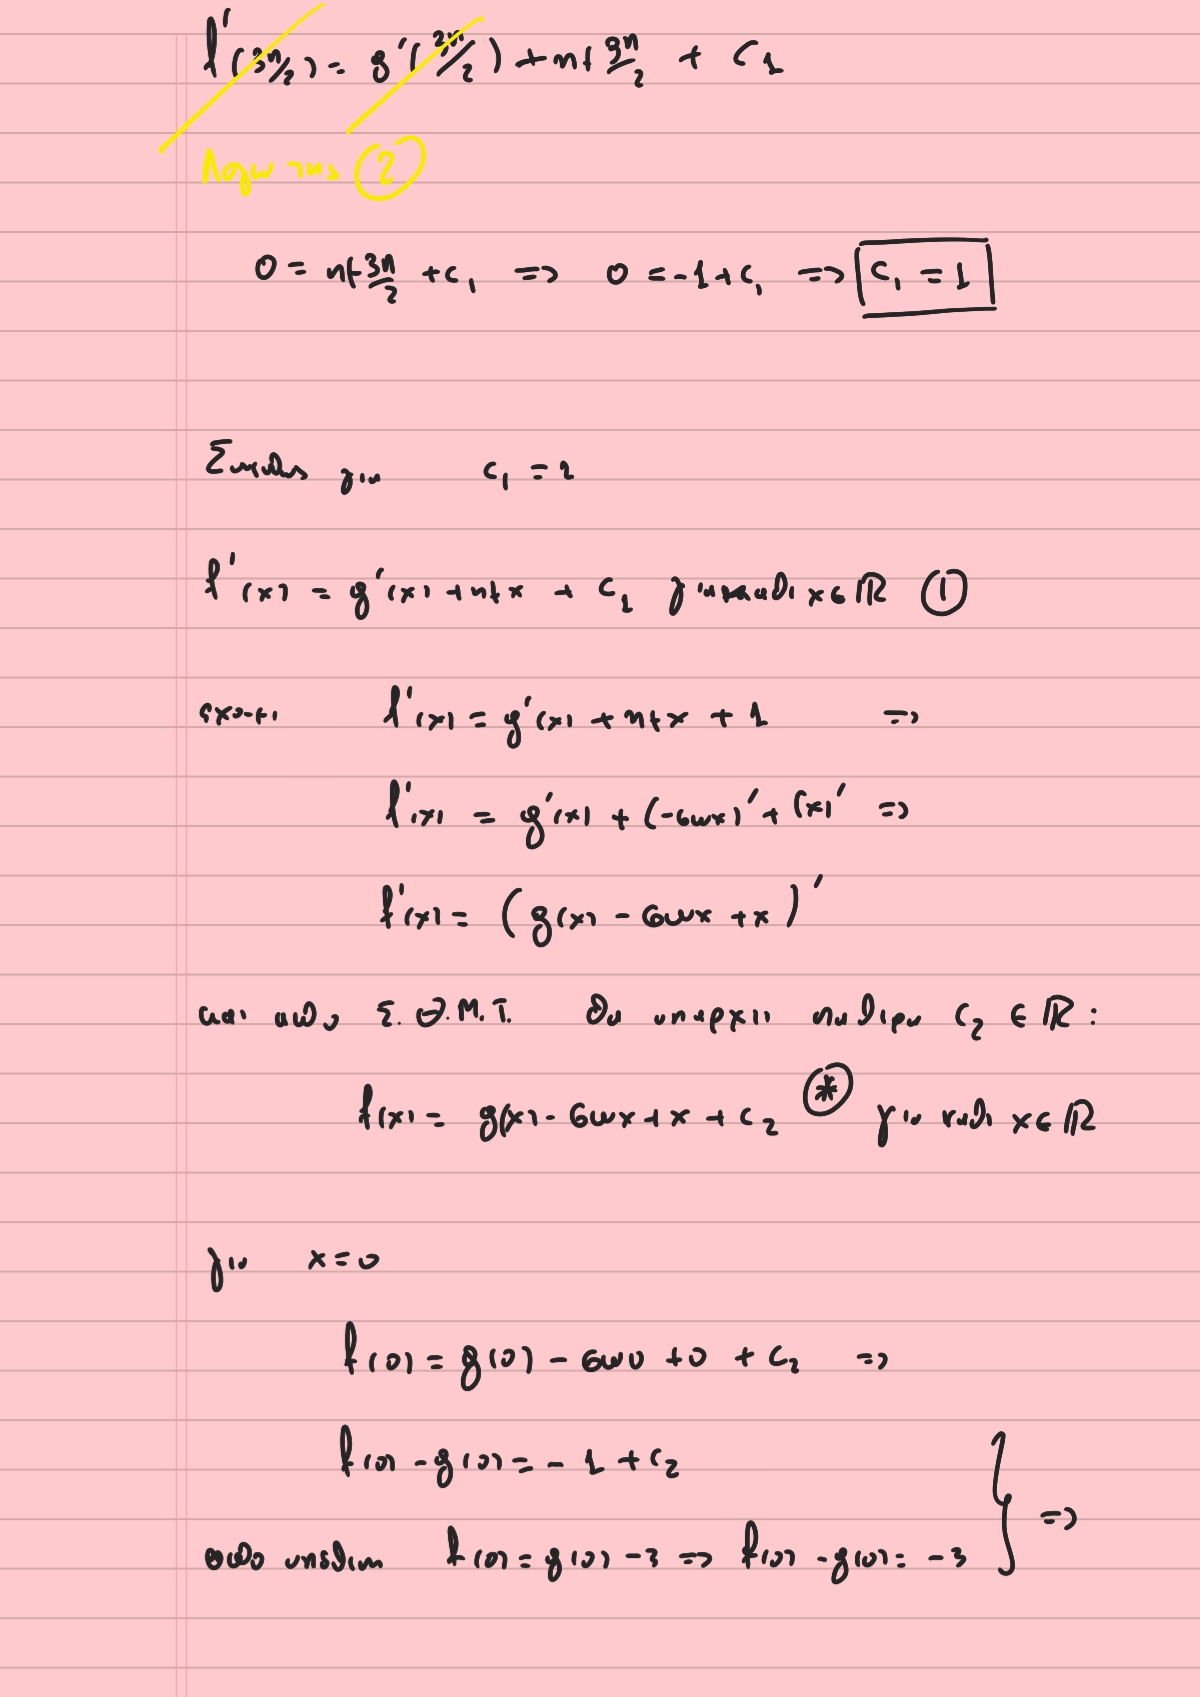 f'(3π/2) = g'(3π/2) + ημ 3π/2 + c₁
Λόγω της ②
0 = ημ 3π/2 + c₁ => 0 = -1 + c₁ => c₁ = 1
Συνεπώς για c₁ = 1
f'(x) = g'(x) + ημx + c₁ για κάθε x ∈ ℝ ①
έχω ότι f'(x) = g'(x) + ημx + 1 =>
f'(x) = g'(x) + (-συνx)' + (x)' =>
f'(x) = (g(x) - συνx + x)'
και από Σ.Θ.Μ.Τ. θα υπάρχει σταθερά c₂ ∈ ℝ :
f(x) = g(x) - συνx + x + c₂ (*) για κάθε x ∈ ℝ
για x = 0
f(0) = g(0) - συν0 + 0 + c₂ =>
f(0) - g(0) = -1 + c₂
από υπόθεση f(0) = g(0) - 3 => f(0) - g(0) = -3 } =>